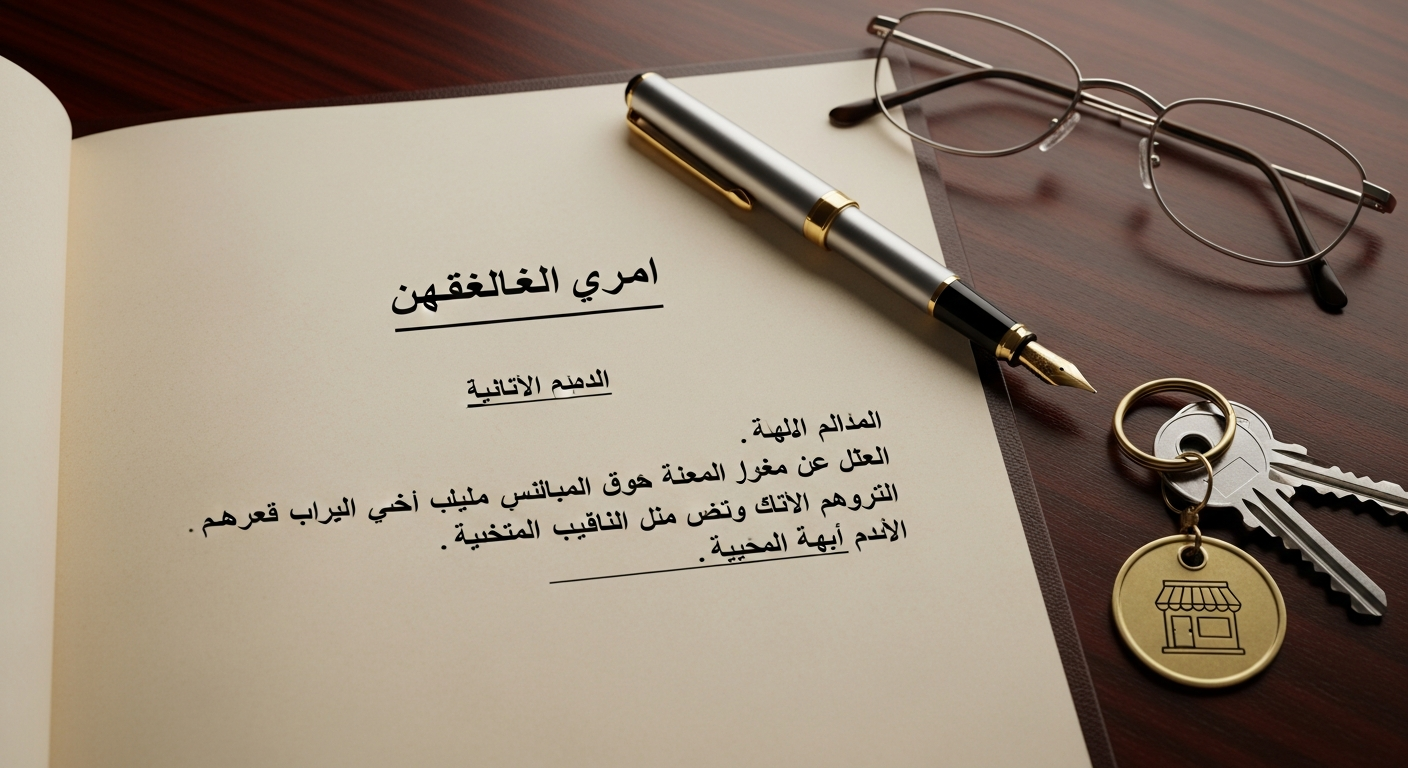 امري الغالغقهن
الدمئم الأتانية
المدالم الهة.
العئل عن مغرر المعنة هوق المبالنس مليلب أخي اليراب قعرهم.
التروهم الأتك وتض مئل الناقيب المتخية.
الأندم أبهة المحيية.